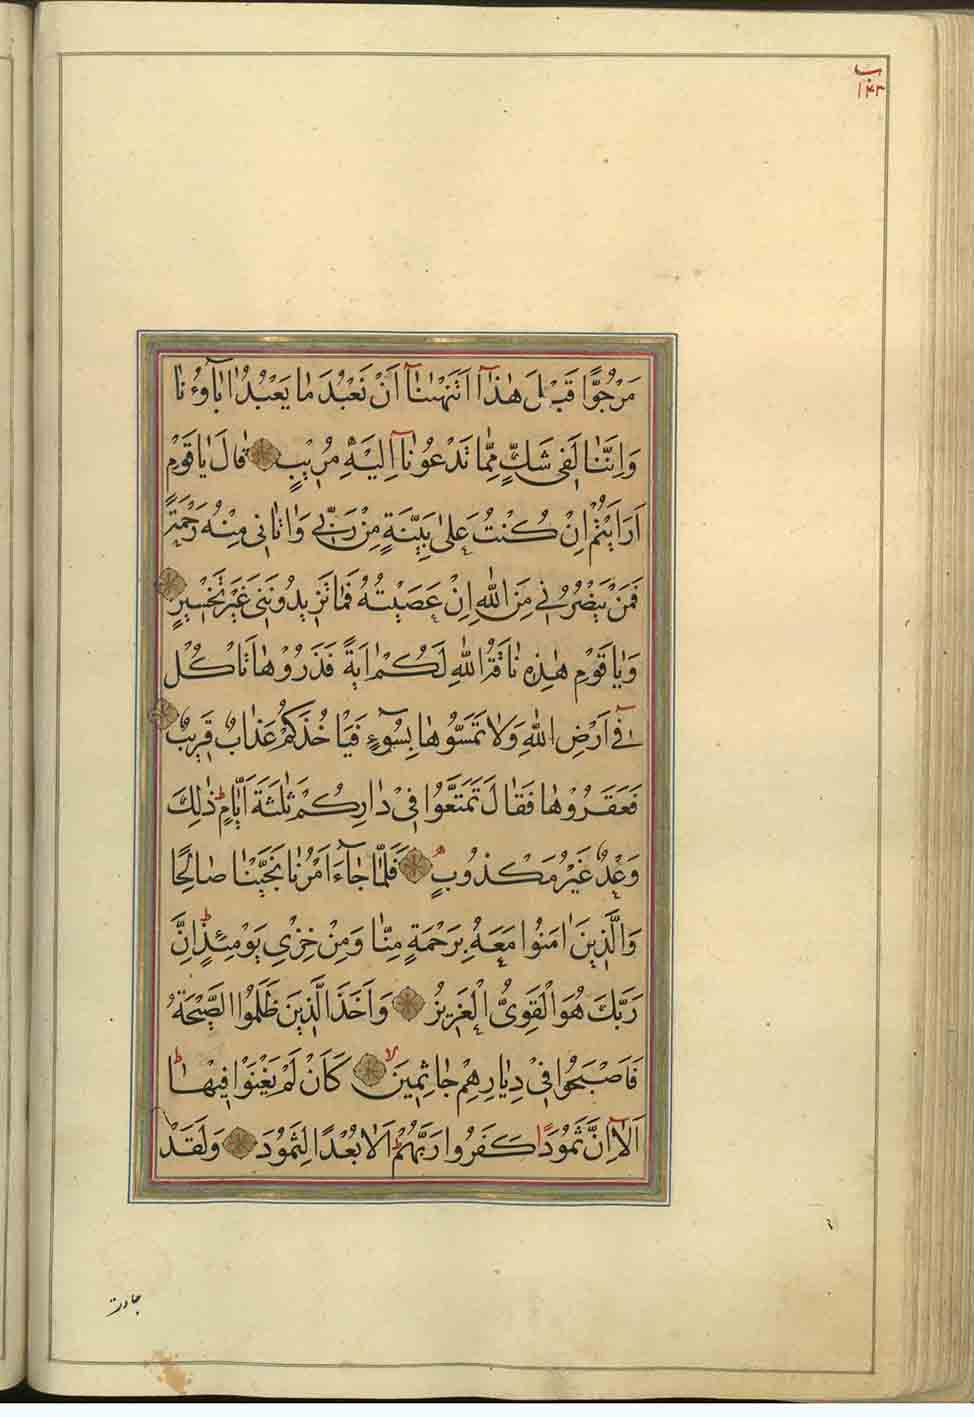 ب
۱۴۳
مَرْجُوًّا قَبْلَ هٰذَآ اَتَنْهٰىنَآ اَنْ نَعْبُدَ مٰا يَعْبُدُ اٰبٰآؤُنٰا
وَاِنَّنٰا لَفى شَكٍّ مِمّٰا تَدْعُونٰآ اِلَيْهِ مُرٖيبٍ قٰالَ يٰا قَوْمِ
اَرَاَيْتُمْ اِنْ كُنْتُ عَلىٰ بَيِّنَةٍ مِنْ رَبّٖى وَاٰتٰانٖى مِنْهُ رَحْمَةً
فَمَنْ يَنْصُرُنٖى مِنَ اللّٰهِ اِنْ عَصَيْتُهُ فَمٰا تَزٖيدُونَنٖى غَيْرَ تَخْسٖيرٍ
وَيٰا قَوْمِ هٰذِهٖ نٰاقَةُ اللّٰهِ لَكُمْ اٰيَةً فَذَرُوْهٰا تَاْكُلْ
فٖٓى اَرْضِ اللّٰهِ وَلٰا تَمَسُّوهٰا بِسُوٓءٍ فَيَاْخُذَكُمْ عَذٰابٌ قَرٖيبٌ
فَعَقَرُوْهٰا فَقٰالَ تَمَتَّعُوا فٖى دٰارِكُمْ ثَلٰثَةَ اَيّٰامٍ ذٰلِكَ
وَعْدٌ غَيْرُ مَكْذُوبٍ فَلَمّٰا جٰآءَ اَمْرُنٰا نَجَّيْنٰا صٰالِحًا
وَالَّذٖينَ اٰمَنُوا مَعَهُ بِرَحْمَةٍ مِنّٰا وَمِنْ خِزْىِ يَوْمِئِذٍ اِنَّ
رَبَّكَ هُوَ الْقَوِىُّ الْعَزٖيزُ وَاَخَذَ الَّذٖينَ ظَلَمُوا الصَّيْحَةُ
فَاَصْبَحُوا فٖى دِيٰارِهِمْ جٰاثِمٖينَ كَاَنْ لَمْ يَغْنَوْا فٖيهٰا
اَلٰٓا اِنَّ ثَمُوْدَا كَفَرُوا رَبَّهُمْ اَلٰا بُعْدًا لِثَمُوْدَ وَلَقَدْ
جاءت